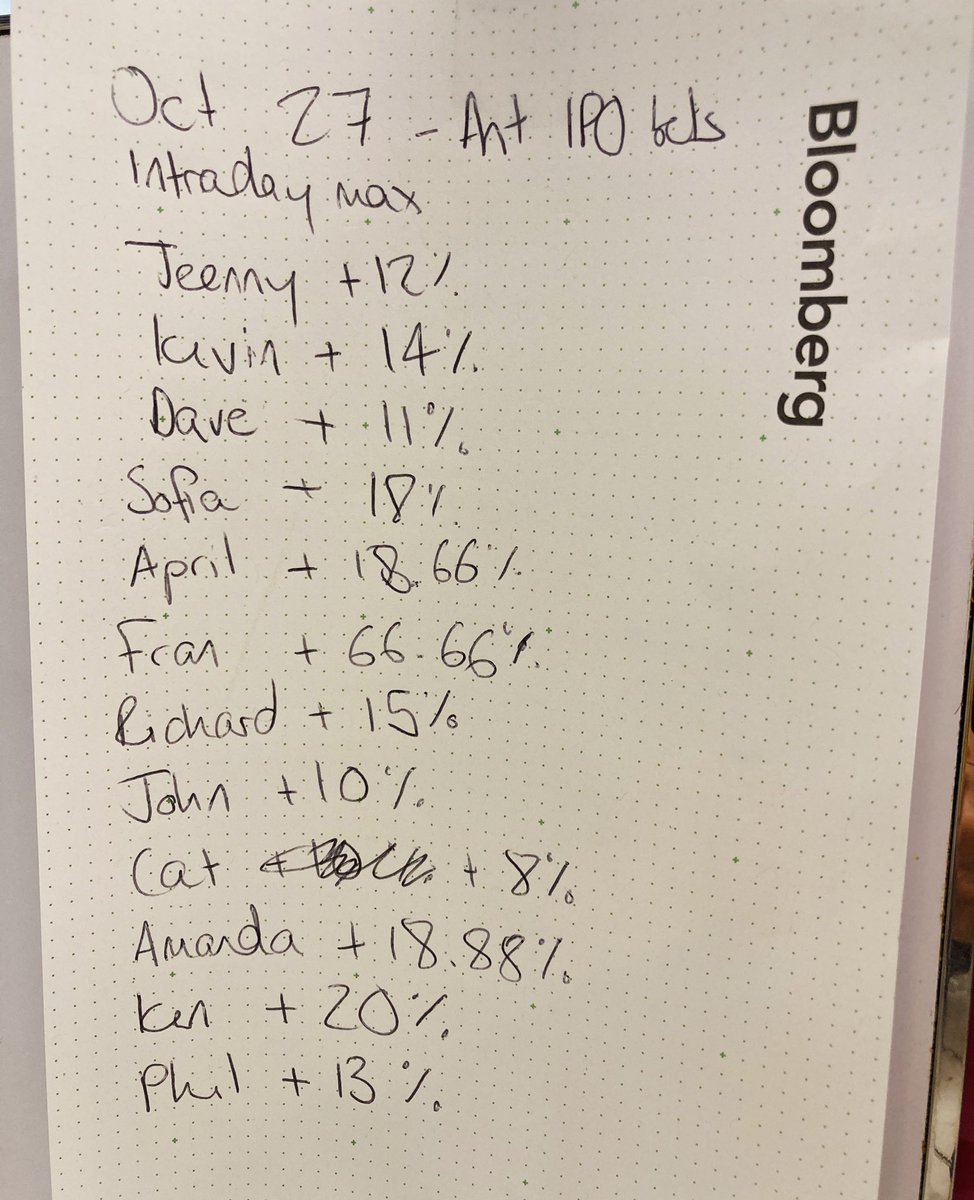 Oct 27 - Ant IPO bets
Intraday max
Jeenny +12%
Kevin + 14%
Dave + 11%
Sofia + 18%
April + 18.66%
Fran + 66.66%
Richard + 15%
John +10%
Cat + 8%
Amanda +18.88%
Ken + 20%
Phil + 13%
Bloomberg